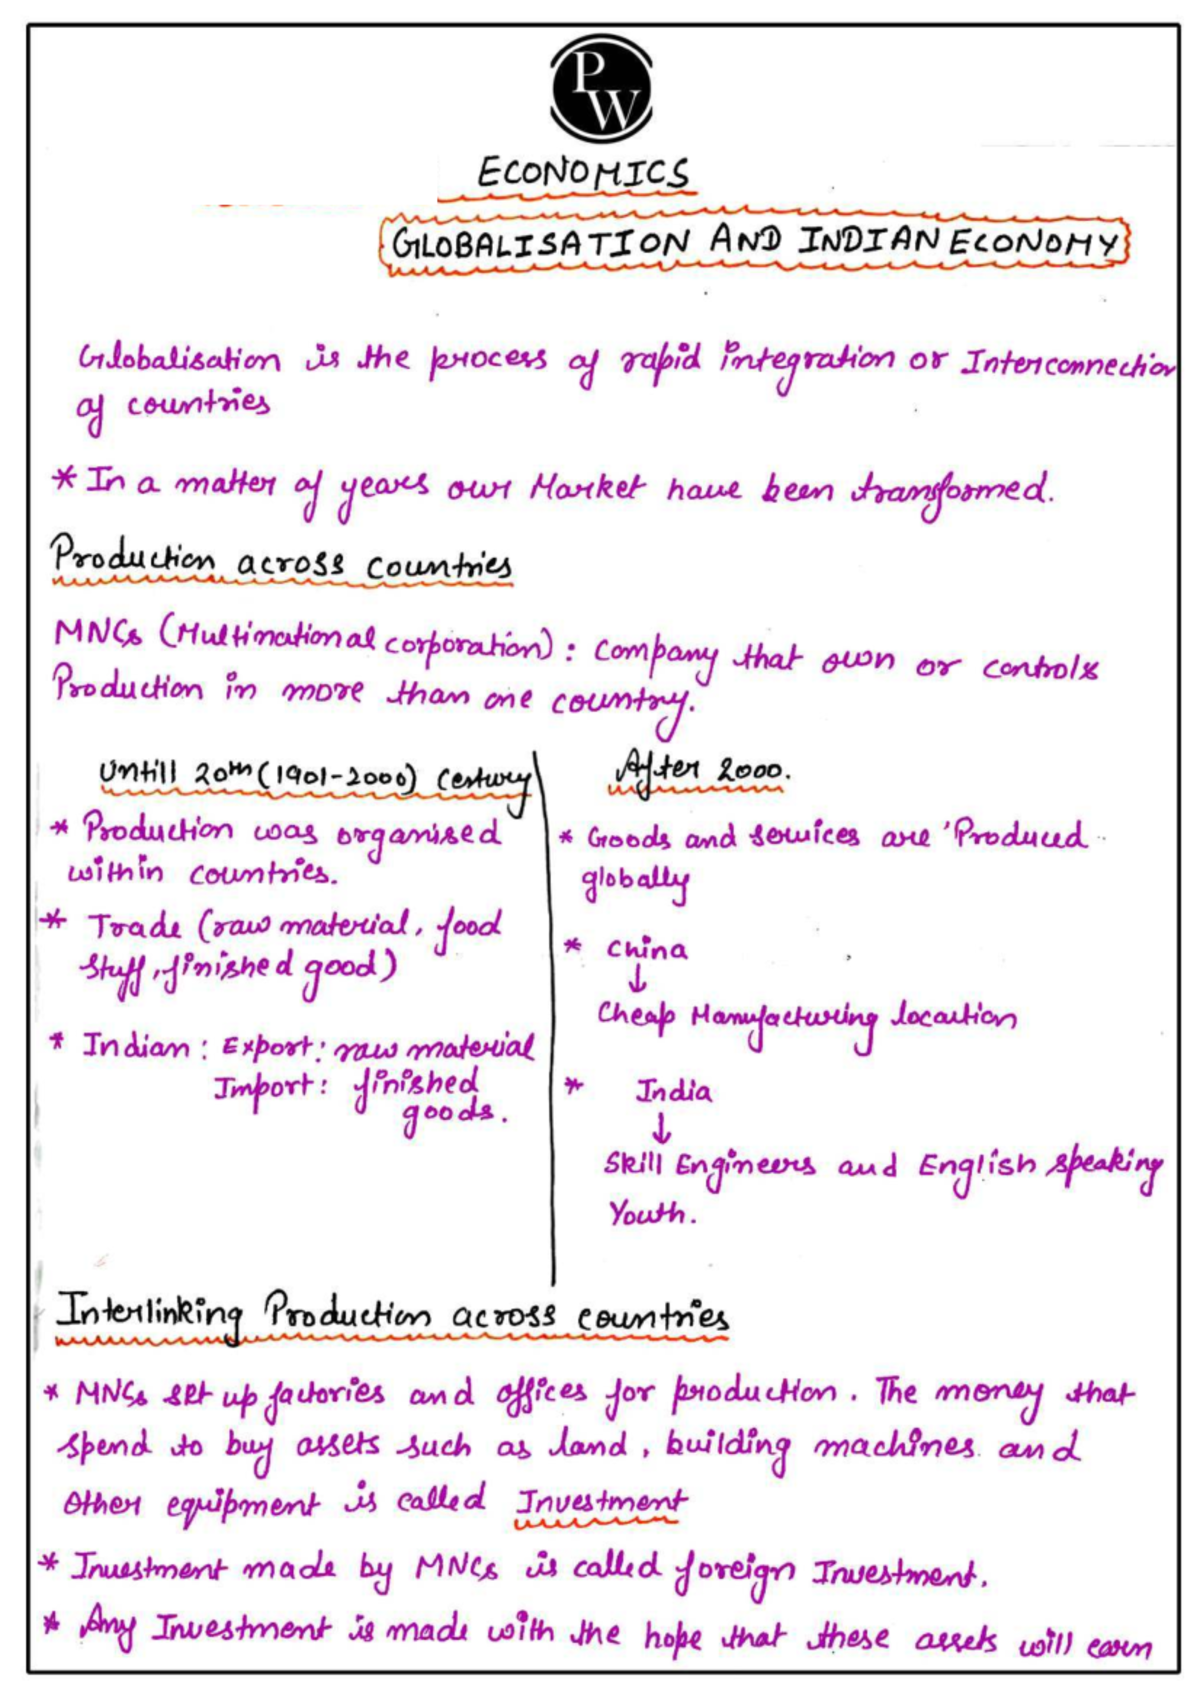 PW
ECONOMICS
GLOBALISATION AND INDIAN ECONOMY
Globalisation is the process of rapid integration or Interconnection
of countries
* In a matter of years our Market have been transformed.
Production across countries
MNCs (Multinational corporation): Company that own or controls
Production in more than one country.
Untill 20th (1901-2000) Century
* Production was organised
within countries.
* Trade (raw material, food
stuff, finished good)
* Indian: Export: raw material
Import: finished
goods.
After 2000.
* Goods and services are 'Produced
globally
* China
↓
Cheap Manufacturing location
* India
↓
Skill Engineers and English speaking
Youth.
Interlinking Production across countries
* MNCs set up factories and offices for production. The money that
spend to buy assets such as land, building machines and
other equipment is called Investment
* Investment made by MNCs is called foreign Investment.
* Any Investment is made with the hope that these assets will earn